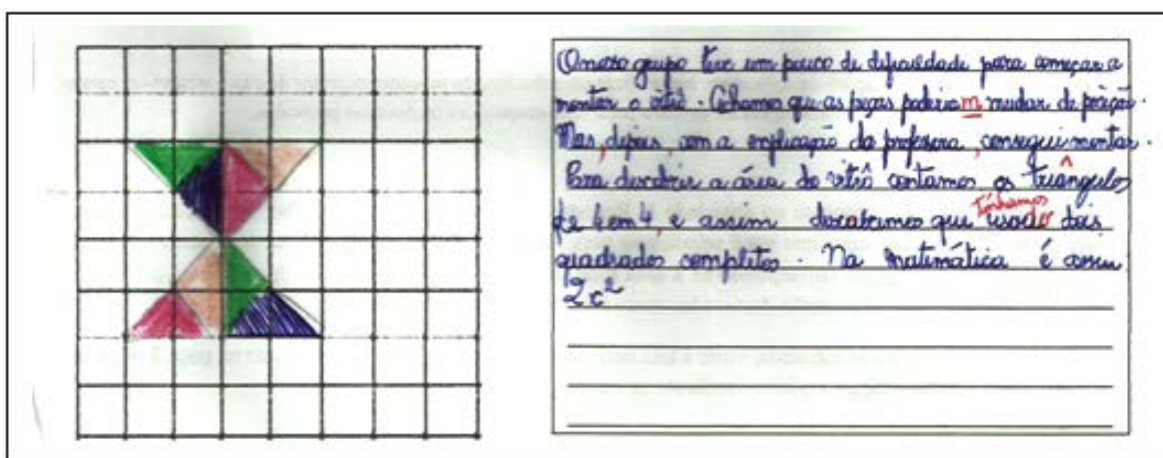 O nosso grupo teve um pouco de dificuldade para começar a
montar o vitrô. Achamos que as peças poderiam mudar de posição.
Mas, depois, com a explicação da professora, consegui montar.
Para descobrir a área do vitrô contamos os triângulos
de 4 em 4, e assim descobrimos que tínhamos usado dois
quadrados completos. Na matemática é assim
2c²